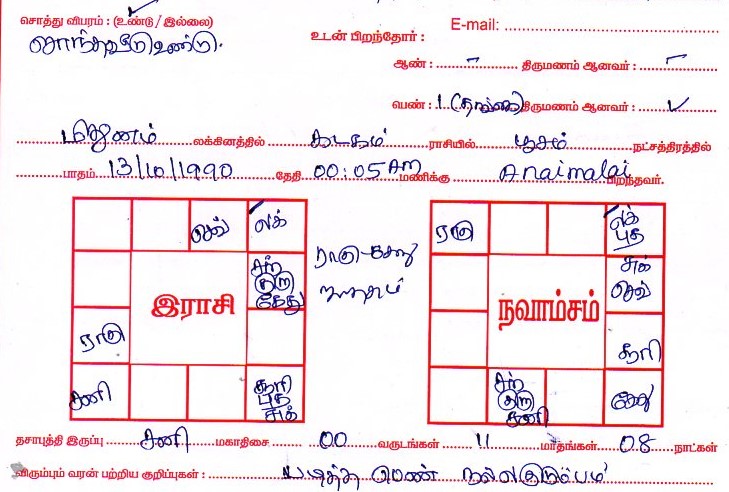 சொத்து விபரம் : (உண்டு / இல்லை)
E-mail:
சொந்தவீடு உண்டு.
உடன் பிறந்தோர் :
ஆண் : - திருமணம் ஆனவர் : -
பெண் : 1 (தங்கை) திருமணம் ஆனவர் : ✓
மிதுனம் லக்கினத்தில் கடகம் ராசியில் பூசம் நட்சத்திரத்தில்
பாதம் 13/10/1990 தேதி 00:05 AM மணிக்கு Anaimalai பிறந்தவர்.
செவ் லக்
சந் குரு கேது
இராசி
ராகு
சனி
சூரி புத சுக்
ராகு-கேது
ராகு
லக் புத
சுக் செவ்
நவாம்சம்
சூரி
சந் குரு சனி
கேது
தசாபுத்தி இருப்பு சனி மகாதிசை 00 வருடங்கள் 11 மாதங்கள் 08 நாட்கள்
விரும்பும் வரன் பற்றிய குறிப்புகள் : படித்த பெண் நல்ல குடும்பம்